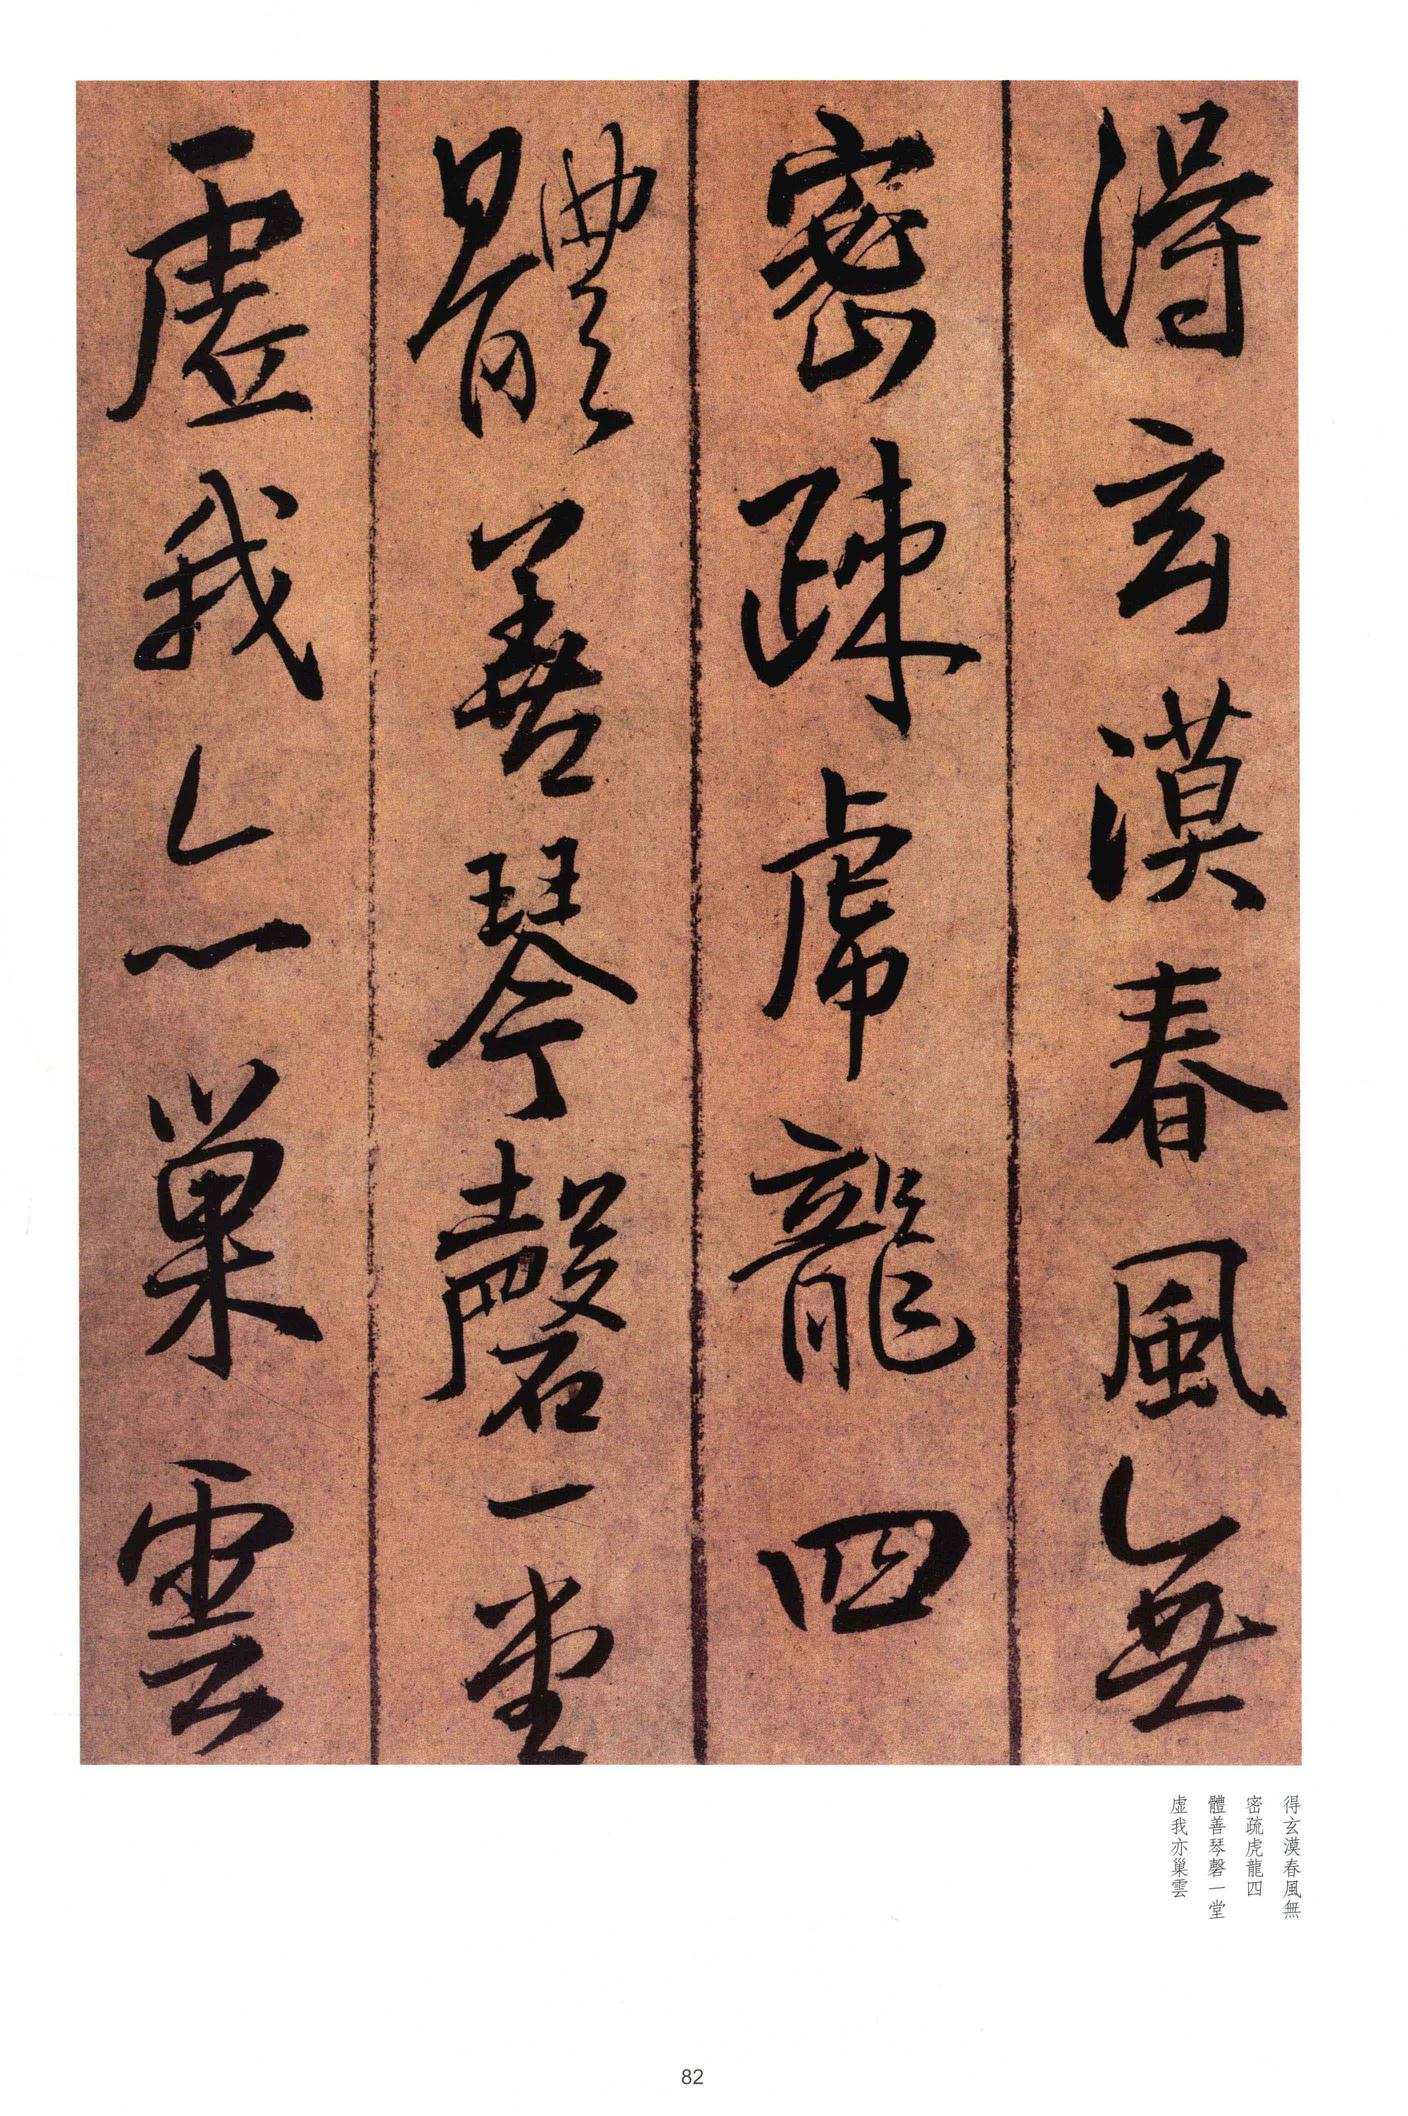 得玄漠春風無
密疏虎龍四
體善琴磬一堂
虛我亦巢雲
得玄漠春風無
密疏虎龍四
體善琴磬一堂
虛我亦巢雲
82